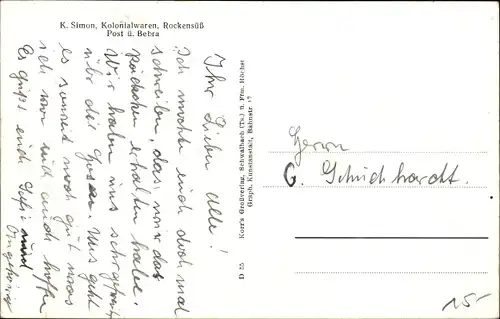 K. Simon, Kolonialwaren, Rockensüß
Post ü. Bebra
Ihr Lieben alle!
Ich möchte euch doch mal
schreiben, das wir das
Päckchen erhalten haben.
Wir haben uns sehr gefreut
über die Uns geht
es soweit noch gut was
ich von euch auch hoffe
Es grüßt euch und
Angehörige
Korr's Großverlag, Schwalbach (Ts.) n. Ffm. Höchst
Graph. Kunstanstalt, Bahnstr. 17
D 55
Herrn
G. Schuchhardt.
15.-